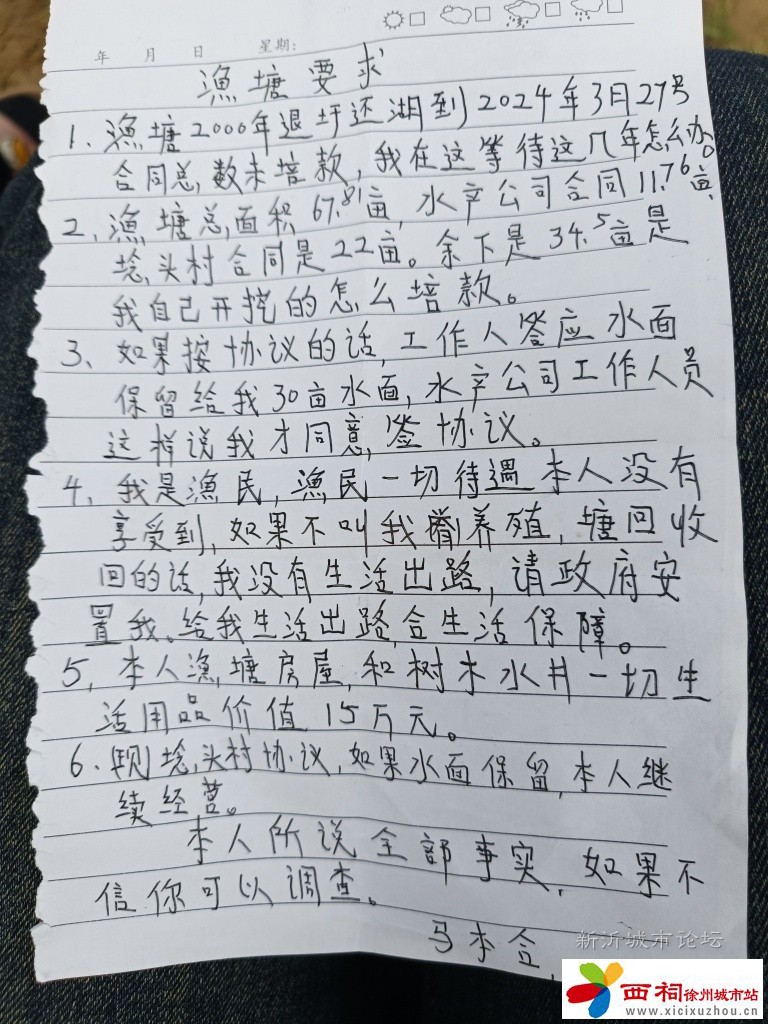 年 月 日 星期:
渔塘要求
1、渔塘2000年退圩还湖到2024年3月27号
合同总,数未培款,我在这等待这几年怎么办。
2、渔塘总,面积67.81亩,水产公司合同11.76亩,
垸,头村合同是22亩。余下是34.5亩是
我自己开挖的怎么培款。
3、如果按协议的话,工作人答应水面
保留给我30亩水面,水产公司工作人员
这样说我才同意,签协议。
4、我是渔民,渔民一切待遇本人没有
享受到,如果不叫我养殖,塘回收
回的话,我没有生活出路,请政府安
置我。给我生活出路,合生活保障。
5,本人渔,塘房屋,和树木水井一切生
活用品价值15万元。
6、现,头村协议,如果水面保留,本人继
续经营。
本人所说全部事实,如果不
信你可以调查。
马本合,
新沂城市论坛
西祠徐州城市站
www.xicixuzhou.cn